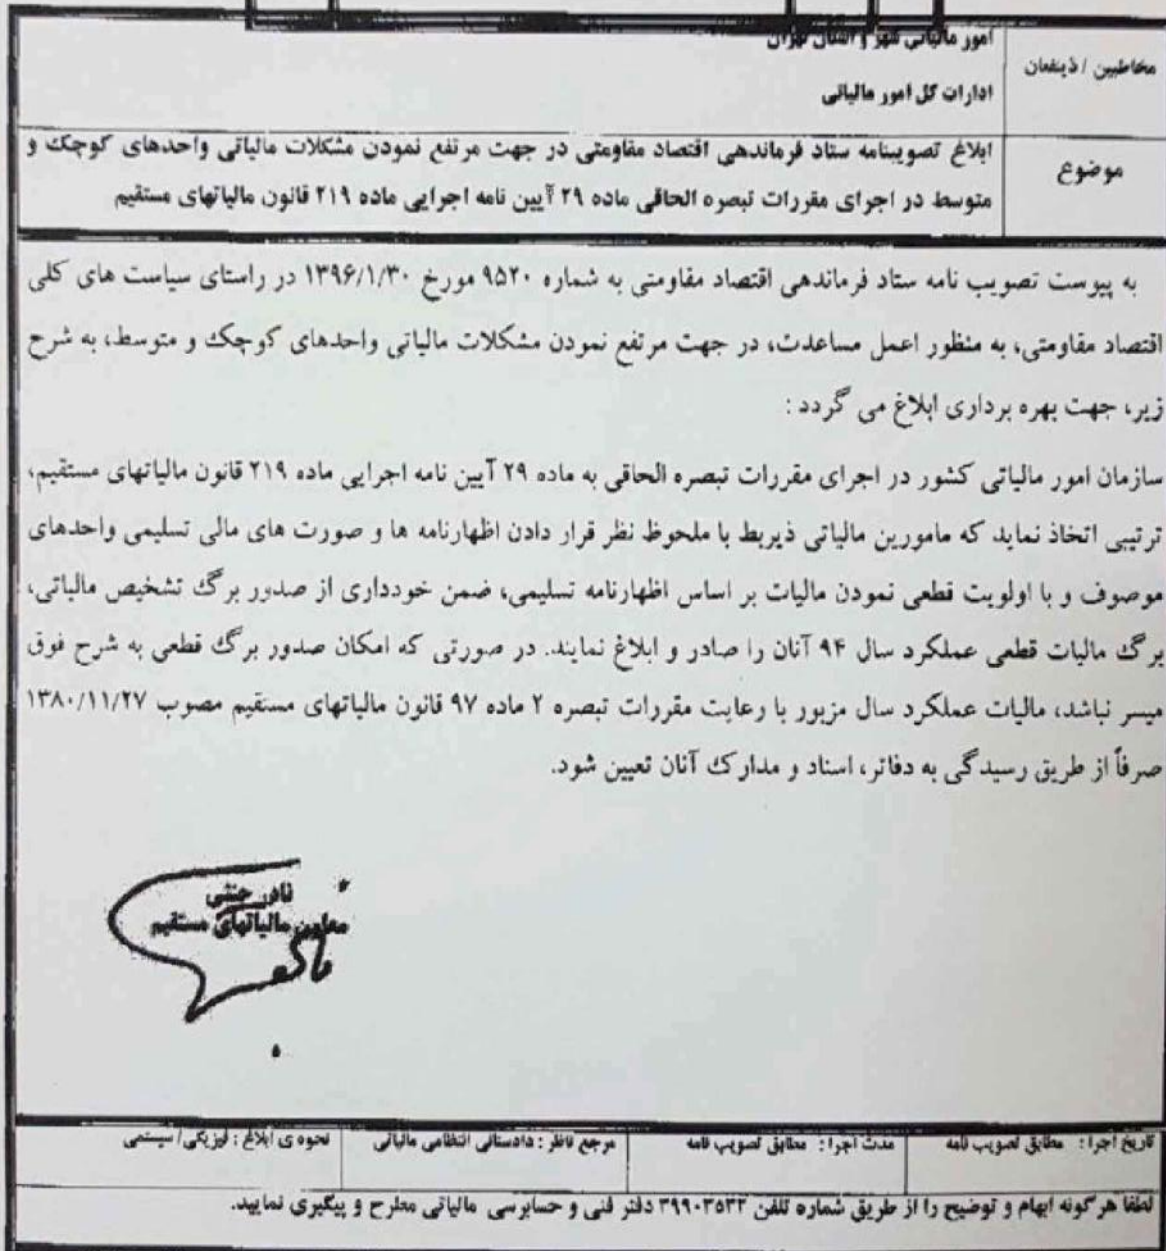 امور مالیاتی شهر و استان تهران
مخاطبین / ذینفعان
ادارات کل امور مالیاتی
موضوع
ابلاغ تصویبنامه ستاد فرماندهی اقتصاد مقاومتی در جهت مرتفع نمودن مشکلات مالیاتی واحدهای کوچک و
متوسط در اجرای مقررات تبصره الحاقی ماده ۲۹ آیین نامه اجرایی ماده ۲۱۹ قانون مالیاتهای مستقیم
به پیوست تصویب نامه ستاد فرماندهی اقتصاد مقاومتی به شماره ۹۵۲۰ مورخ ۱۳۹۶/۱/۳۰ در راستای سیاست های کلی
اقتصاد مقاومتی، به منظور اعمل مساعدت، در جهت مرتفع نمودن مشکلات مالیاتی واحدهای کوچک و متوسط، به شرح
زیر، جهت بهره برداری ابلاغ می گردد :
سازمان امور مالیاتی کشور در اجرای مقررات تبصره الحاقی به ماده ۲۹ آیین نامه اجرایی ماده ۲۱۹ قانون مالیاتهای مستقیم،
ترتیبی اتخاذ نماید که مامورین مالیاتی ذیربط با ملحوظ نظر قرار دادن اظهارنامه ها و صورت های مالی تسلیمی واحدهای
موصوف و با اولویت قطعی نمودن مالیات بر اساس اظهارنامه تسلیمی، ضمن خودداری از صدور برگ تشخیص مالیاتی،
برگ مالیات قطعی عملکرد سال ۹۴ آنان را صادر و ابلاغ نمایند. در صورتی که امکان صدور برگ قطعی به شرح فوق
میسر نباشد، مالیات عملکرد سال مزبور با رعایت مقررات تبصره ۲ ماده ۹۷ قانون مالیاتهای مستقیم مصوب ۱۳۸۰/۱۱/۲۷
صرفاً از طریق رسیدگی به دفاتر، اسناد و مدارک آنان تعیین شود.
نادر جنتی
معاون مالیاتهای مستقیم
تاریخ اجرا : مطابق تصویب نامه
مدت اجرا : مطابق تصویب نامه
مرجع ناظر : دادستانی انتظامی مالیاتی
نحوه ی ابلاغ : فیزیکی/ سیستمی
لطفا هر گونه ابهام و توضیح را از طریق شماره تلفن ۳۹۹۰۳۵۳۲ دفتر فنی و حسابرسی مالیاتی مطرح و پیگیری نمایید.